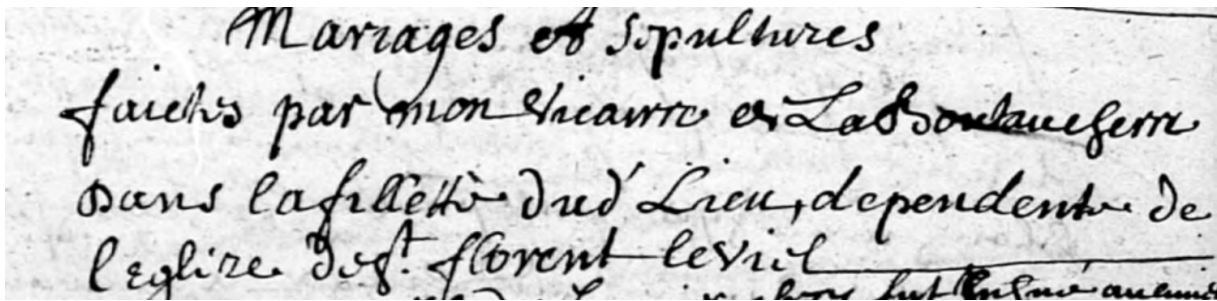 Mariages et sepultures
faictes par mon vicaire
dans la fillette dud Lieu, dependente de
l'eglize de St. florent le viel
fut